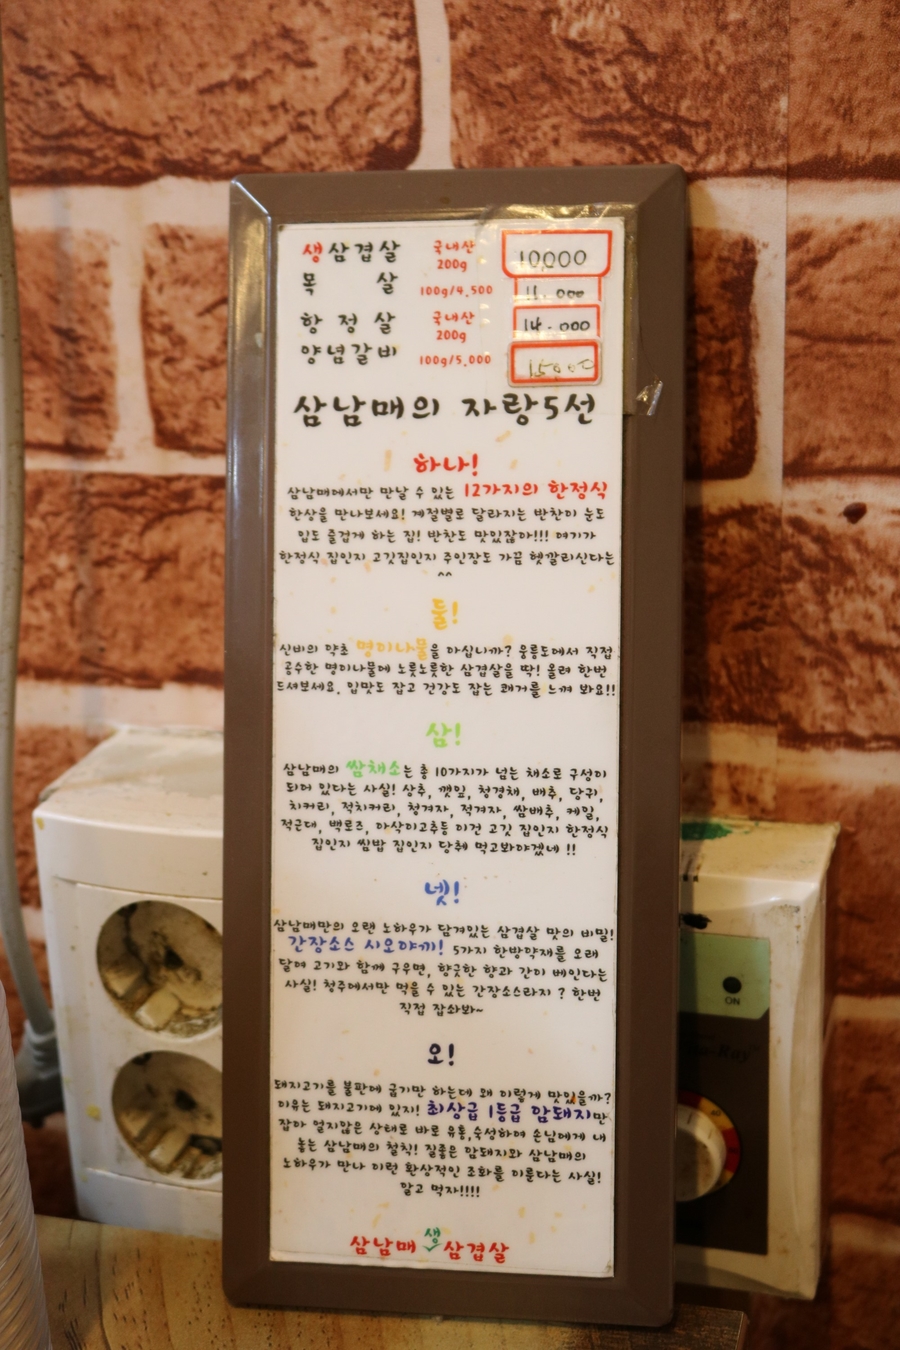 생삼겹살 국내산 200g 10,000
목 살 100g/4,500 11,000
항정살 국내산 200g 14,000
양념갈비 100g/5,000 15000
삼남매의 자랑5선
하나!
삼남매에서만 만날 수 있는 12가지의 한정식
한상을 만나보세요! 계절별로 달라지는 반찬이 눈도
입도 즐겁게 하는 집! 반찬도 맛있잖아!!! 여기가
한정식 집인지 고깃집인지 주인장도 가끔 헷갈리신다는
^^
둘!
신비의 약초 명이나물을 아십니까? 울릉도에서 직접
공수한 명이나물에 노릇노릇한 삼겹살을 딱! 올려 한번
드셔보세요. 입맛도 잡고 건강도 잡는 쾌거를 느껴 봐요!!
삼!
삼남매의 쌈채소는 총 10가지가 넘는 채소로 구성이
되어 있다는 사실! 상추, 깻잎, 청경채, 배추, 당귀,
치커리, 적치커리, 청겨자, 적겨자, 쌈배추, 케일,
적근대, 백로즈, 아삭이고추등 이건 고깃 집인지 한정식
집인지 쌈밥 집인지 당췌 먹고봐야겠네 !!
넷!
삼남매만의 오랜 노하우가 담겨있는 삼겹살 맛의 비밀!
간장소스 시오야끼! 5가지 한방약재를 오래
달여 고기와 함께 구우면, 향긋한 향과 간이 베인다는
사실! 청주에서만 먹을 수 있는 간장소스라지 ? 한번
직접 잡솨봐~
오!
돼지고기를 불판에 굽기만 하는데 왜 이렇게 맛있을까?
이유는 돼지고기에 있지! 최상급 1등급 암돼지만
잡아 얼지않은 상태로 바로 유통,숙성하여 손님에게 내
놓는 삼남매의 철칙! 질좋은 암돼지와 삼남매의
노하우가 만나 이런 환상적인 조화를 이룬다는 사실!
알고 먹자!!!!
삼남매 생 삼겹살
ON